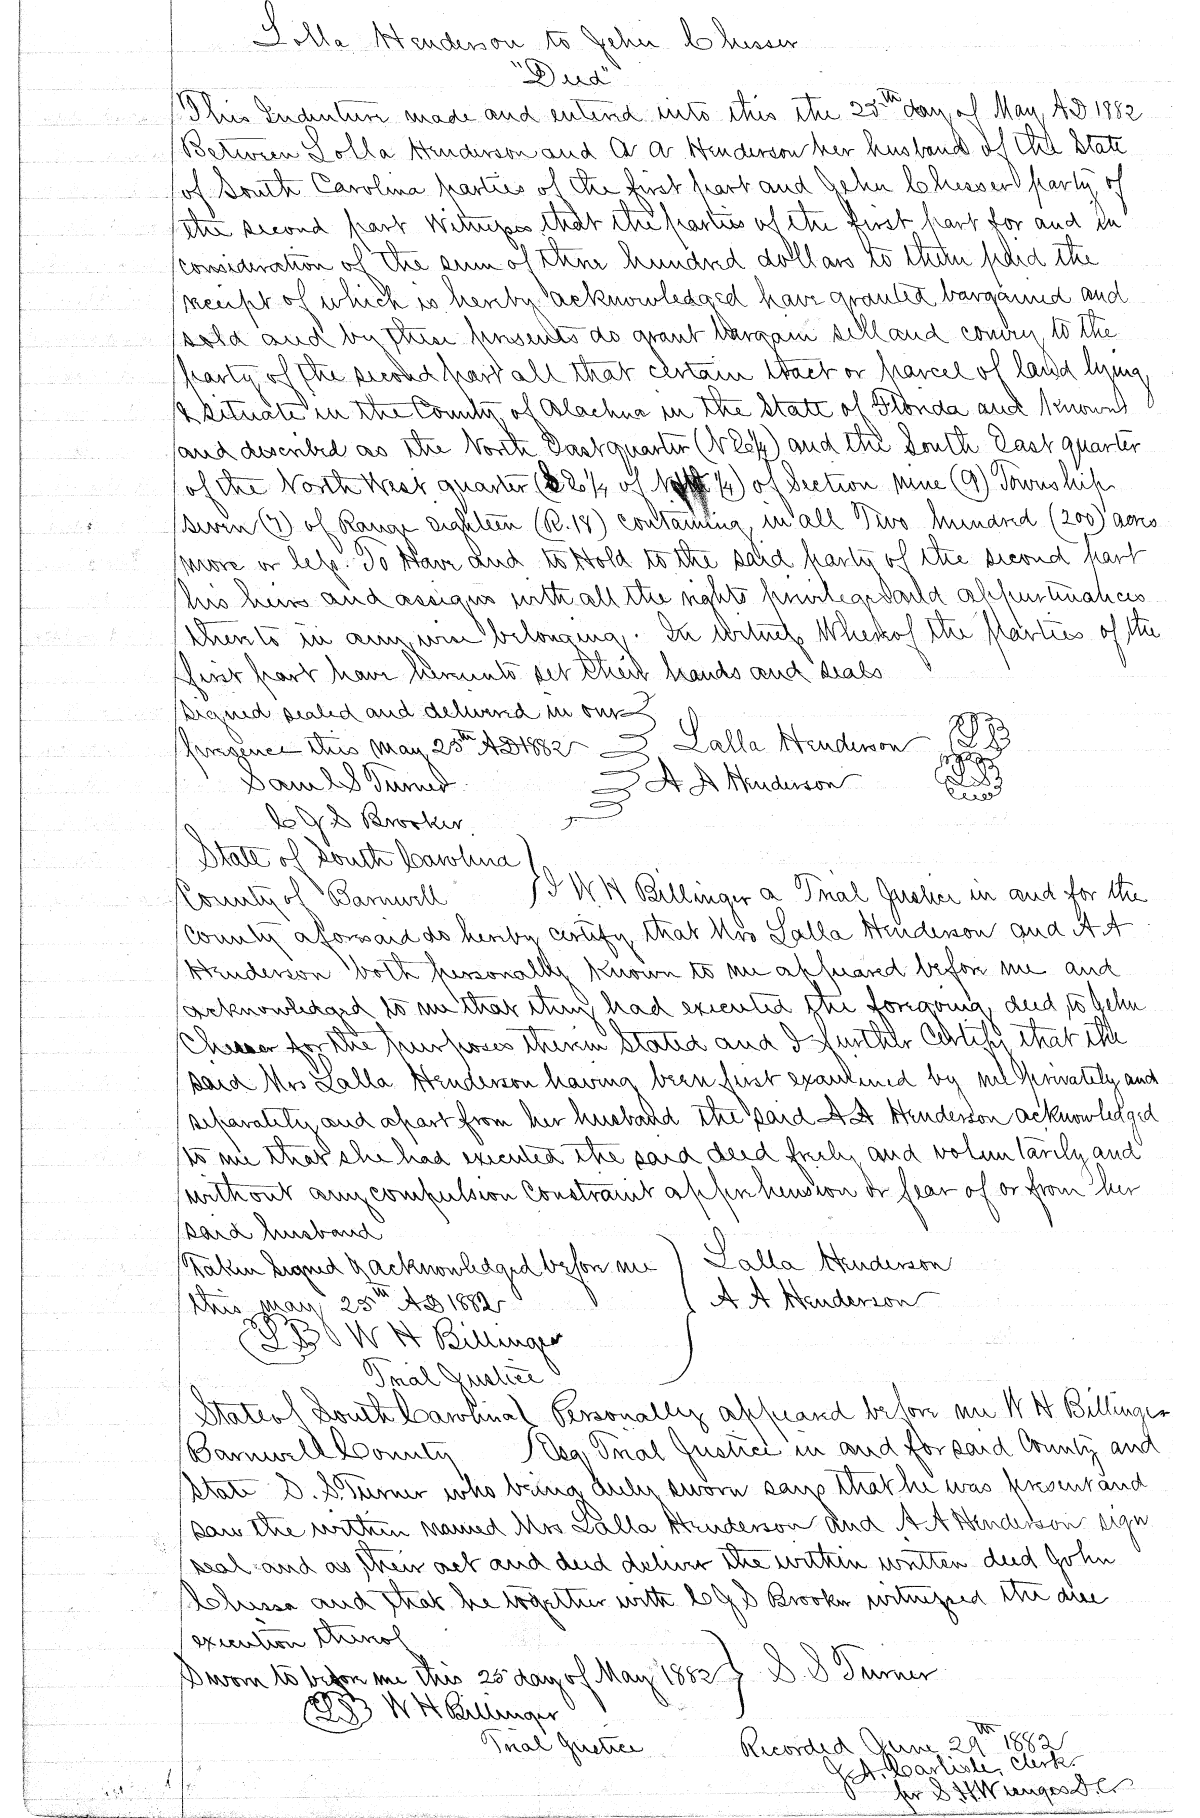 Lolla Henderson to John Chesser
"Deed"
This Indenture made and entered into this the 25th day of May AD 1882
Between Lolla Henderson and A A Henderson her husband of the State
of South Carolina parties of the first part and John Chesser party of
the second part Witness that the parties of the first part for and in
consideration of the sum of three hundred dollars to them paid the
receipt of which is hereby acknowledged have granted bargained and
sold and by these presents do grant bargain sell and convey to the
party of the second part all that certain tract or parcel of land lying
& situate in the County of Alachua in the State of Florida and known
and described as the North East quarter (N E ¼) and the South East quarter
of the North West quarter (S E ¼ of ¼) of Section nine (9) Township
Seven (7) of Range eighteen (R.18) containing in all Two hundred (200) acres
more or less. To Have and to Hold to the said party of the second part
his heirs and assigns with all the rights privileges and appurtinances
thereto in any wise belonging. In Witness Whereof the parties of the
first part have hereunto set their hands and seals
Signed sealed and delivered in our
presence this May 25th AD 1882 Lalla Henderson LS
Saml S Turner A A Henderson LS
C G S Brooker
State of South Carolina
County of Barnwell } I W H Billinger a Trial Justice in and for the
County aforesaid do hereby certify that Mrs Lalla Henderson and A A
Henderson both personally known to me appeared before me and
acknowledged to me that they had executed the foregoing deed to John
Chesser for the purposes therein Stated and I further Certify that the
said Mrs Lalla Henderson having been first examined by me privately and
separately and apart from her husband the said A A Henderson acknowledged
to me that she had executed the said deed freely and voluntarily and
without any compulsion constraint apprehension or fear of or from her
said husband
Taken Signed & acknowledged before me } Lalla Henderson
this May 25th AD 1882 A A Henderson
LS W H Billinger
Trial Justice
State of South Carolina } Personally appeared before me W H Billinger
Barnwell County } Esq Trial Justice in and for said County and
State S. S. Turner who being duly sworn says that he was present and
saw the within named Mrs Lalla Henderson and A A Henderson sign
seal and as their act and deed deliver the within written deed John
Chesser and that he together with C G S Brooker witnessed the due
execution thereof
Sworn to before me this 25 day of May 1882 } S. S Turner
LS W H Billinger
Trial Justice Recorded June 29th 1882
J. A. Carlisle, Clerk
per S. H. Wienges D.C